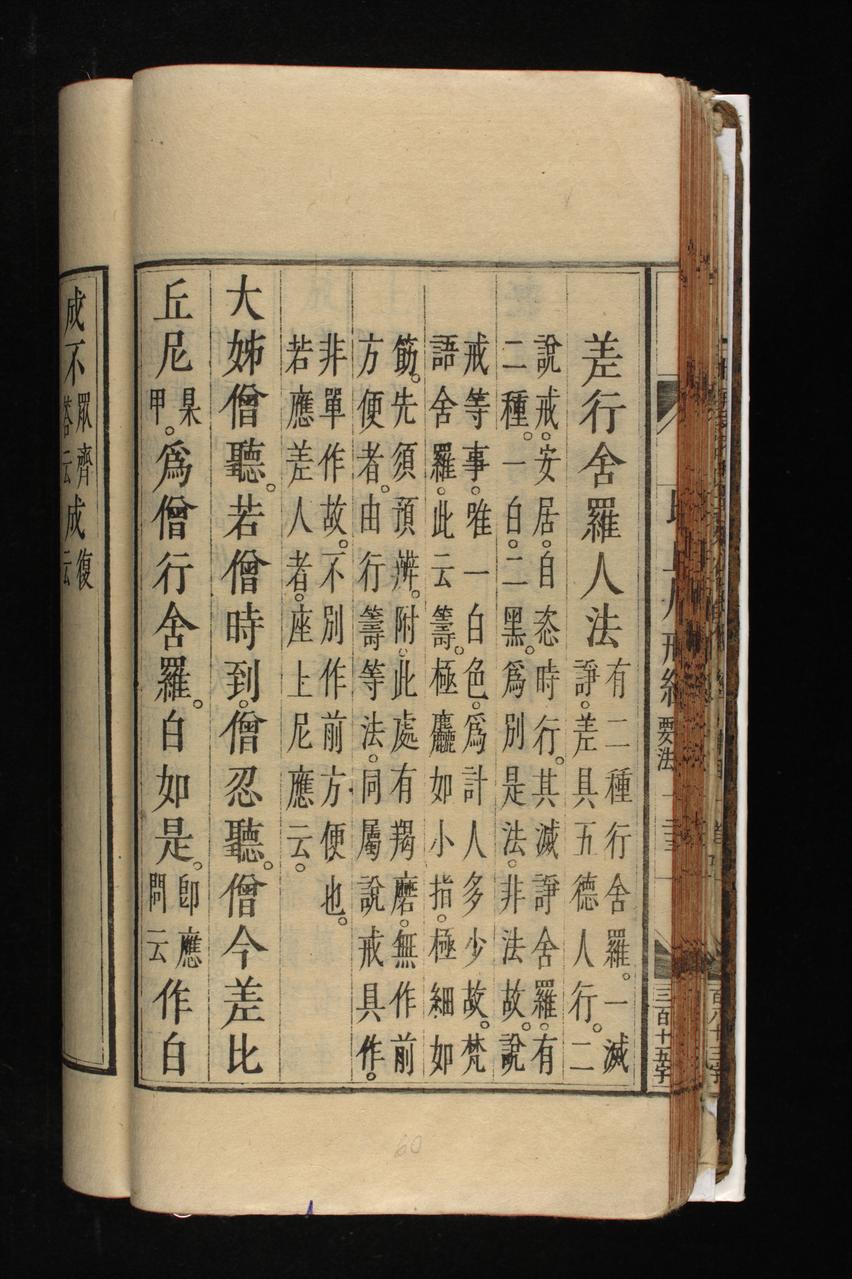 差行舍羅人法有二種行舍羅。一滅
諍。差具五德人行。二
說戒。安居。自恣時行。其滅諍舍羅。有
二種。一白。二黑。爲別是法。非法故。說
戒等事。唯一白色。爲計人多少故。梵
語舍羅。此云籌。極麤如小指。極細如
筋。先須預辨。附。此處有羯磨。無作前
方便者。由行籌等法。同屬說戒具作。
非單作故。不別作前方便也。
若應差人者。座上尼應云。
大姊僧聽。若僧時到。僧忍聽。僧今差比
丘尼某甲。爲僧行舍羅。白如是。卽應問云作白
成不眾齊答云成復云
要法
三百十五字